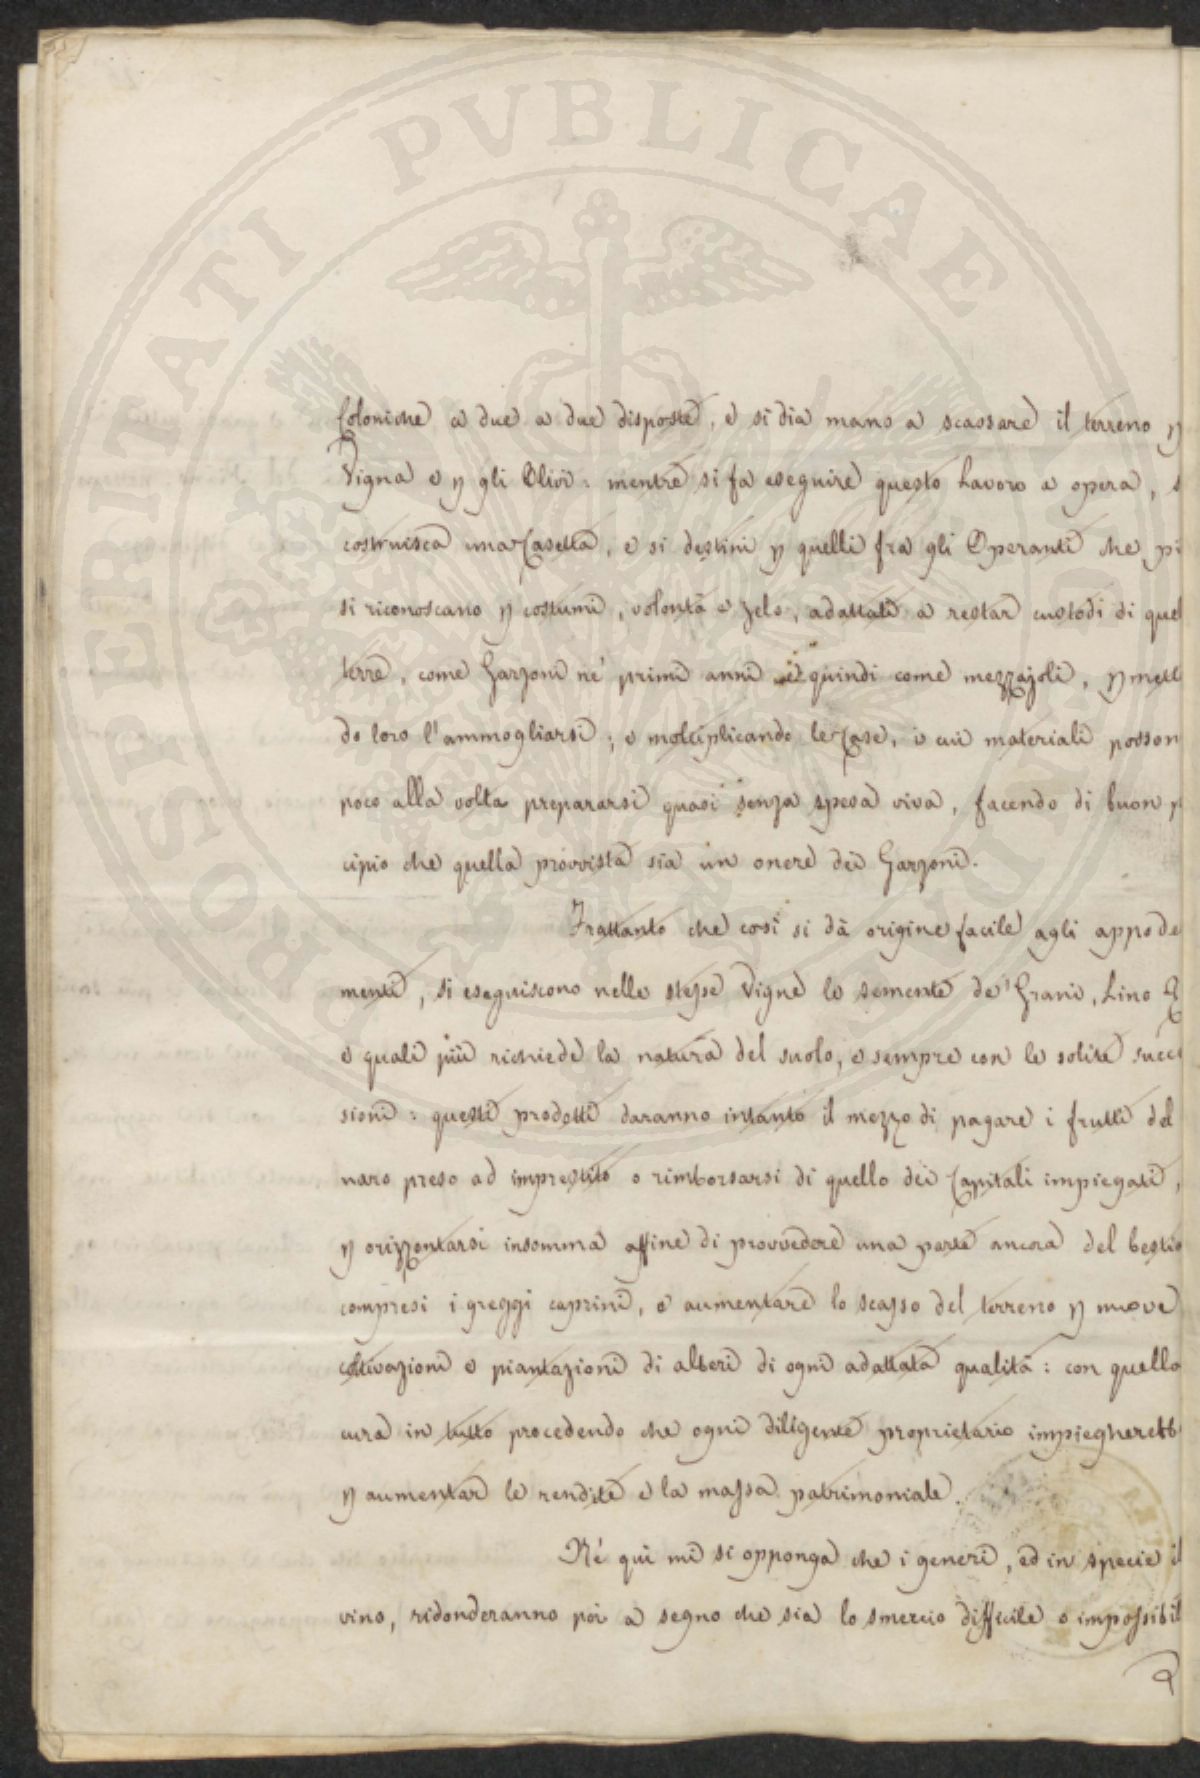 PROSPERITATI PVBLICAE
Coloniche a due a due disposte, e si dia mano a scassare il terreno p
Vigna e p gli Olivi: mentre si fa eseguire questo Lavoro a opera, s
costruisca una Casetta, e si destini p quelli fra gli Operanti che pi
si riconoscano p costumi, volontà e zelo, adattati a restar custodi di quel
terre, come Garzoni ne' primi anni e quindi come mezzajoli, pmett
do loro l'ammogliarsi; e moltiplicando le Case, i cui materiali posson
poco alla volta prepararsi quasi senza spesa viva, facendo di buon p
cipio che quella provvista sia un onere dei Garzoni.
Frattanto che così si dà origine facile agli appode
menti, si eseguiscono nelle stesse Vigne le semente de' Grani, Lino &
e quali più richiede la natura del suolo, e sempre con le solite succe
sioni: questi prodotti daranno intanto il mezzo di pagare i frutti del
naro preso ad imprestito o rimborsarsi di quello dei Capitali impiegati,
p orizzontarsi insomma affine di provvedere una parte ancora del bestia
compresi i greggi caprini, e aumentare lo scasso del terreno p nuove
coltivazioni e piantazioni di alberi di ogni adattata qualità: con quella
cura in tutto procedendo che ogni diligente proprietario impiegherebb
p aumentar le rendite e la massa patrimoniale.
Nè qui mi si opponga che i generi, ed in specie il
vino, ridonderanno poi a segno che sia lo smercio difficile o impossibil